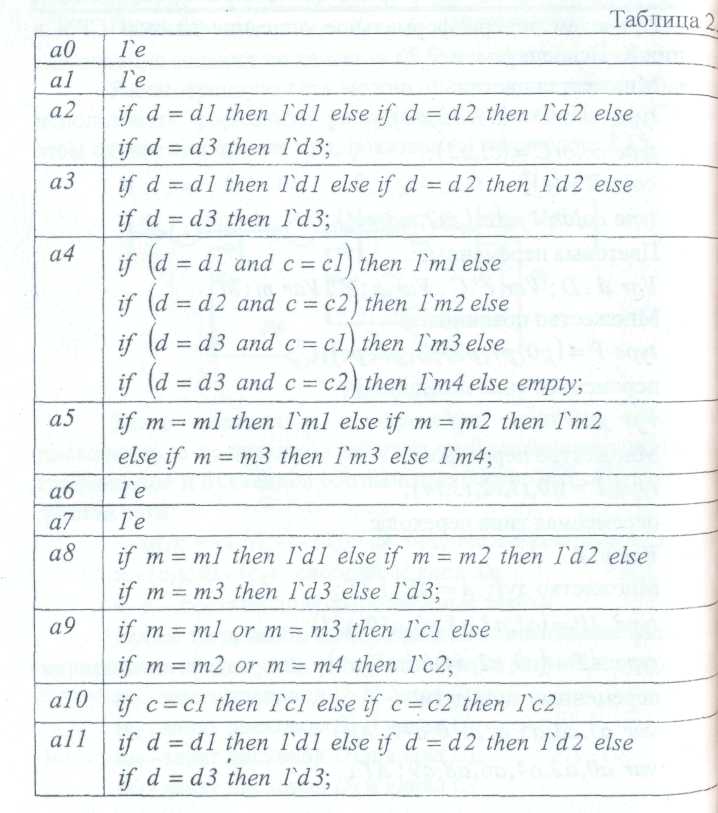 Таблица 2.
a0 1`e
a1 1`e
a2 if d = d1 then 1`d1 else if d = d2 then 1`d2 else
if d = d3 then 1`d3;
a3 if d = d1 then 1`d1 else if d = d2 then 1`d2 else
if d = d3 then 1`d3;
a4 if (d = d1 and c = c1) then 1`m1 else
if (d = d2 and c = c2) then 1`m2 else
if (d = d3 and c = c1) then 1`m3 else
if (d = d3 and c = c2) then 1`m4 else empty;
a5 if m = m1 then 1`m1 else if m = m2 then 1`m2
else if m = m3 then 1`m3 else 1`m4;
a6 1`e
a7 1`e
a8 if m = m1 then 1`d1 else if m = m2 then 1`d2 else
if m = m3 then 1`d3 else 1`d3;
a9 if m = m1 or m = m3 then 1`c1 else
if m = m2 or m = m4 then 1`c2;
a10 if c = c1 then 1`c1 else if c = c2 then 1`c2
a11 if d = d1 then 1`d1 else if d = d2 then 1`d2 else
if d = d3 then 1`d3;